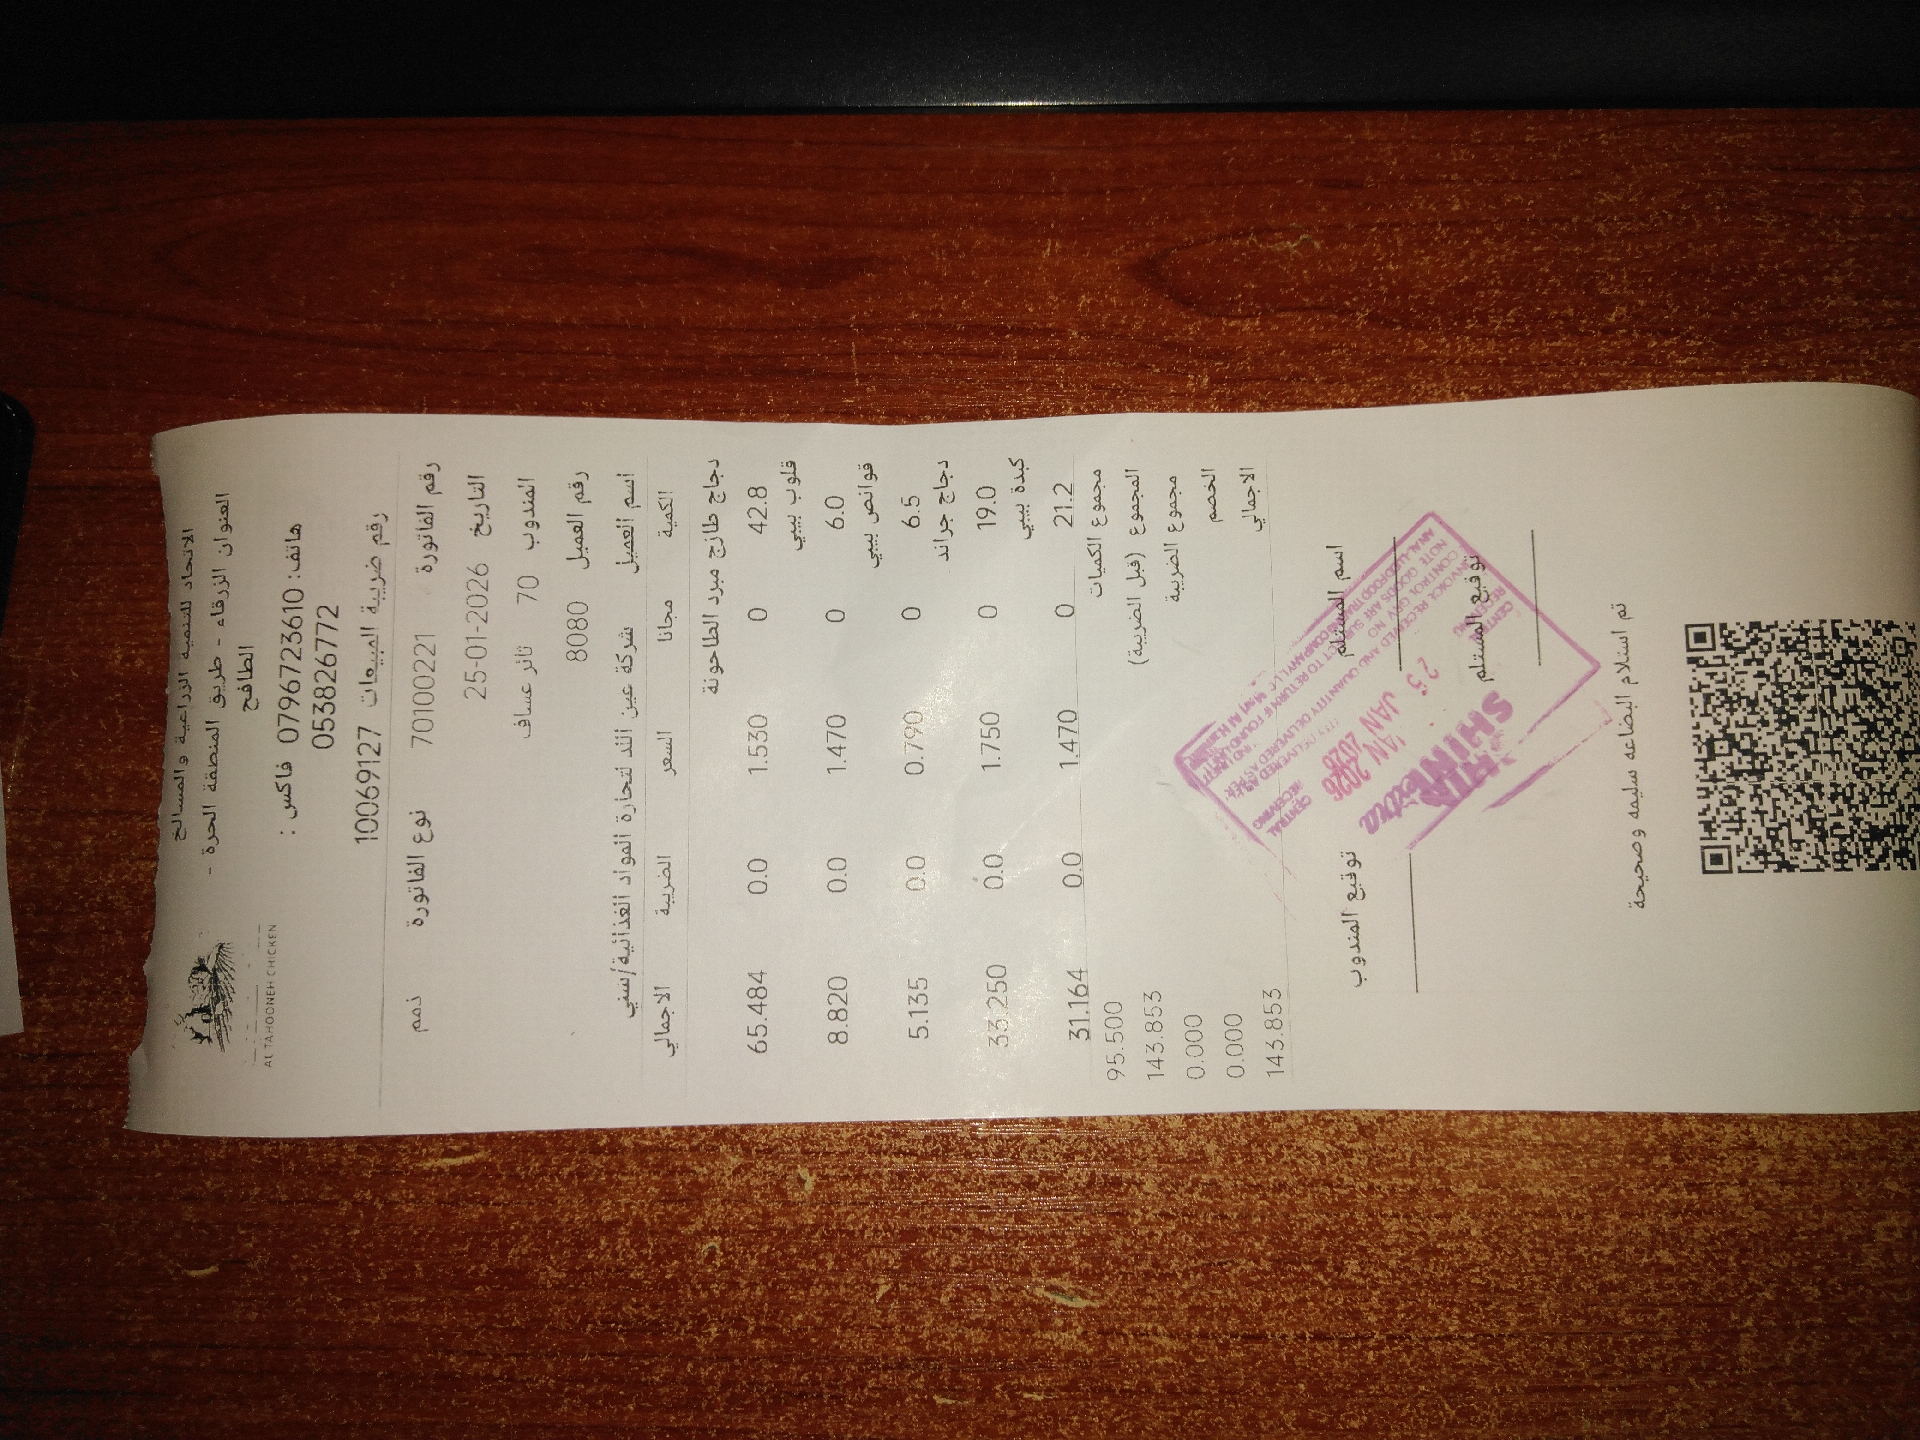 AL TAHOONEH CHICKEN
الاتحاد للتنمية الزراعية والمسالخ
العنوان الزرقاء - طريق المنطقة الحرة -
الطافح
هاتف: 0796723610 فاكس :
053826772
رقم ضريبة المبيعات 10069127
رقم الفاتورة 70100221 نوع الفاتورة ذمم
التاريخ 25-01-2026
المندوب 70 ثائر عساف
رقم العميل 8080
اسم العميل شركة عين اللد لتجارة المواد الغذائية/سني
الكمية مجانا السعر الضريبة الاجمالي
دجاج طازج مبرد الطاحونة
42.8 0 1.530 0.0 65.484
قلوب بيبي
6.0 0 1.470 0.0 8.820
قوانص بيبي
6.5 0 0.790 0.0 5.135
دجاج جراند
19.0 0 1.750 0.0 33.250
كبدة بيبي
21.2 0 1.470 0.0 31.164
مجموع الكميات 95.500
المجموع (قبل الضريبة) 143.853
مجموع الضريبة 0.000
الخصم 0.000
الاجمالي 143.853
اسم المستلم توقيع المندوب
توقيع المستلم
CENTRAL
RECEIVING
JAN 2026
SHIN
تم استلام البضاعه سليمه وصحيحة